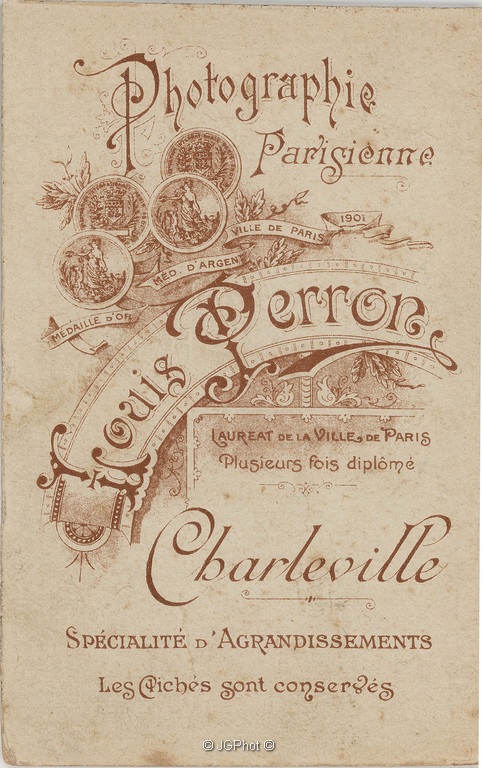 Photographie
Parisienne
MÉDAILLE D'OR
MÉD. D'ARGENT
VILLE DE PARIS
1901
Louis Perron
LAUREAT DE LA VILLE DE PARIS
Plusieurs fois diplômé
Charleville
SPÉCIALITÉ D'AGRANDISSEMENTS
Les Clichés sont conservés
© JGPhot ©